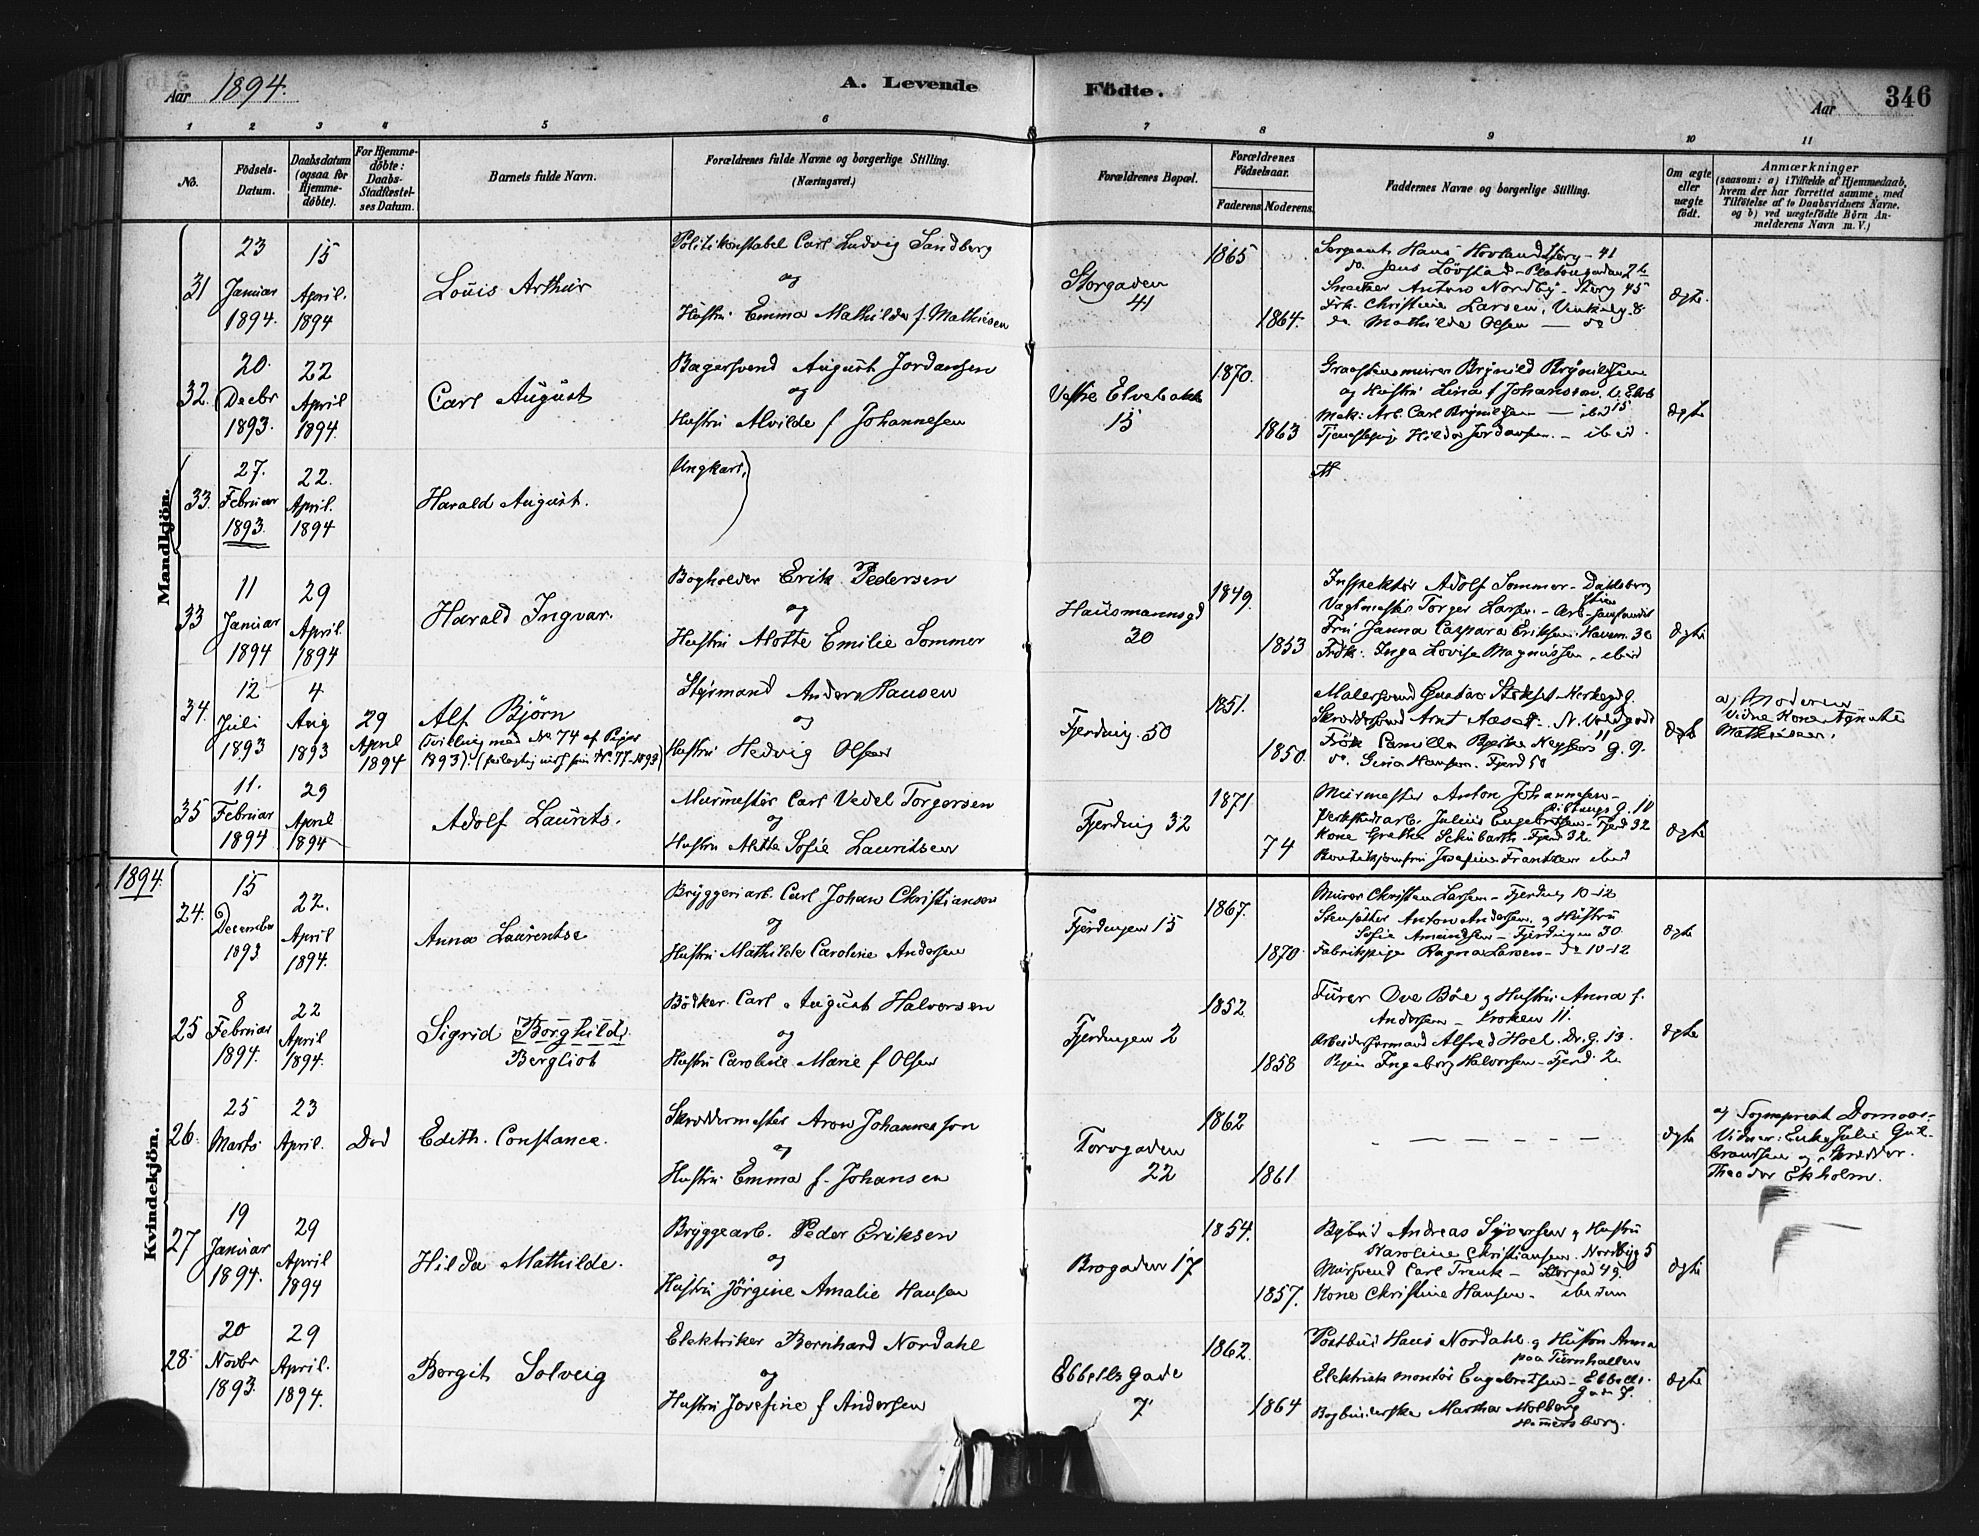 Aar 1894.
A. Levende Födte.
Aar
346
1 2 3 4 5 6 7 8 9 10 11
No.
Födsels-Datum.
Daabsdatum (ogsaa for Hjemme-döbte).
For Hjemme-döbte: Daabs-Stadfæstel-ses Datum.
Barnets fulde Navn.
Forældrenes fulde Navne og borgerlige Stilling. (Næringsvei.)
Forældrenes Bopæl.
Forældrenes Födselsaar.
Faderens. Moderens.
Faddernes Navne og borgerlige Stilling.
Om ægte eller uægte födt.
Anmærkninger
(saasom: a) i Tilfælde af Hjemmedaab,
hvem der har forrettet samme, med
Tilföielse af to Daabsvidners Navne.
og b) ved uægtefödte Börn An-
melderens Navn m. V.)
Mandkjön.
31
23 Januar 1894.
15 April. 1894
Louis Arthur
Politikonstabel Carl Ludvig Sandberg
og
Hustru Emma Mathilde f. Mathiesen
Storgaden 41
1865
1864.
Sergeant Hans Hovland Storg - 41
do. Jens Lövstad - Platousgaden
Anton Nordby - Storg 45
Frk. Christine Larsen,
do Mathilde Olsen — do
ægte.
32.
20. Decbr 1893.
22 April 1894.
Carl August
Bagersvend August Jordansen
og
Hustru Alvilde f Johannesen
Vestre Elvebakke 15
1870.
1863
Brynild Brynildsen
og Hustru Lina f Johansson, V. Elveb
Mek: Arb. Carl Brynildsen — ibid 15
Hilda Jordansen. - ibid.
ægte
33.
27. Februar 1893.
22. April. 1894
Harald August.
Ungkarl,
33
11 Januar 1894
29 April. 1894
Harald Ingvar.
Bogholder Erik Pedersen
og
Hustru Alette Emilie Sommer
Hausmannsgd 30
1849.
1853
Inspektör Adolf Sommer - Dahlsberg
stien
Vagtmester Torger Larsen. - Arb-
Fru Janna Caspara Eriksen. Hausm. 30
Frök: Inga Lovise Magnussen, ibid
ægte
34.
12 Juli 1893
4 Aug 1893
29 April 1894
Alf Björn
Tvilling med No 74 af Piger
1893).
Styrmand Anders Hansen
og
Hustru Hedvig Olsen
Fjerding. 50
1851.
1850.
Malersvend Gustav
Skræddersvend Arnt Aaseth. N. Voldgade 11
Frök Camilla Bjerke G. 9.
do. Gina Hansen. Fjerd 50
ægte
a) Moderen
Vidne Kone Agnete
Mathiesen.
35
11. Februar 1894
29 April 1894
Adolf Laurits.
Murmester Carl Vedel Torgersen
og
Hustru Alette Sofie Lauritsen
Fjerding 32
1871.
74
Murmester Anton Johannesen -
G. 10
Verkstedsarb. Julius Engebretsen - Fjerd 32
Kone Grethe Schubarth - Fjerd 32
Josefine Frantzen ibid
ægte
1894
Kvindekjön.
24.
15 December 1893
22. April 1894.
Anna Laurentse
Bryggeriarb. Carl Johan Christiansen
og
Hustru Mathilde Caroline Andersen
Fjerdingen 15
1867.
1870.
Murer Christen Larsen - Fjerding 10-12
Anton Andersen. og Hustru
Sofie Amundsen - Fjerdingen 30.
Fabrikspige Ragna Larsen - do 10-12
ægte
25
8 Februar 1894.
22 April 1894.
Sigrid Borghild
Bergliot
Bödker Carl August Halvorsen
og
Hustru Caroline Marie f Olsen
Fjerdingen 2
1852.
1858
Furer Ove Böe og Hustru Anna f.
Andersen - Kroken 11.
Arbeidsformand Alfred Hoel. Dr. G. 13.
Pigen Ingeborg Halvorsen - Fjerd. 2.
ægte
26.
25 Marts
23 April.
Död
Edith. Constance.
Skreddermester Aron Johannesson
og
Hustru Emma f. Johansen
Torvgaden 22
1862
1861
- — — — — —
ægte
a) Sogneprest Domaas-
Vidner: Enke Julie Gul-
brandsen og Skrædder.
Theodor Ekholm.
27
19 Januar 1894.
29 April 1894
Hilda Mathilde.
Bryggearb. Peder Eriksen
og
Hustru Jörgine Amalie Hansen
Brogaden 17
1854.
1857.
Bybud Andreas Syversen og Hustru
Karoline Christiansen. Nordbyg 5
Mursvend Carl Frank - Storgad 49.
Kone Christine Hansen. - ibidem
ægte
28.
20 Novbr 1893.
29 April. 1894.
Borgit Solveig
Elektriker Bernhard Nordahl
og
Hustru Josefine f Andersen
Ebbells Gade 7
1862.
1864
Postbud Hans Nordahl. og Hustru Anna
paa Turnhallen
Elektrisk montör Engebretsen - Ebbells.
Gade 7.
Martha Molberg
Hammersborg.
ægte